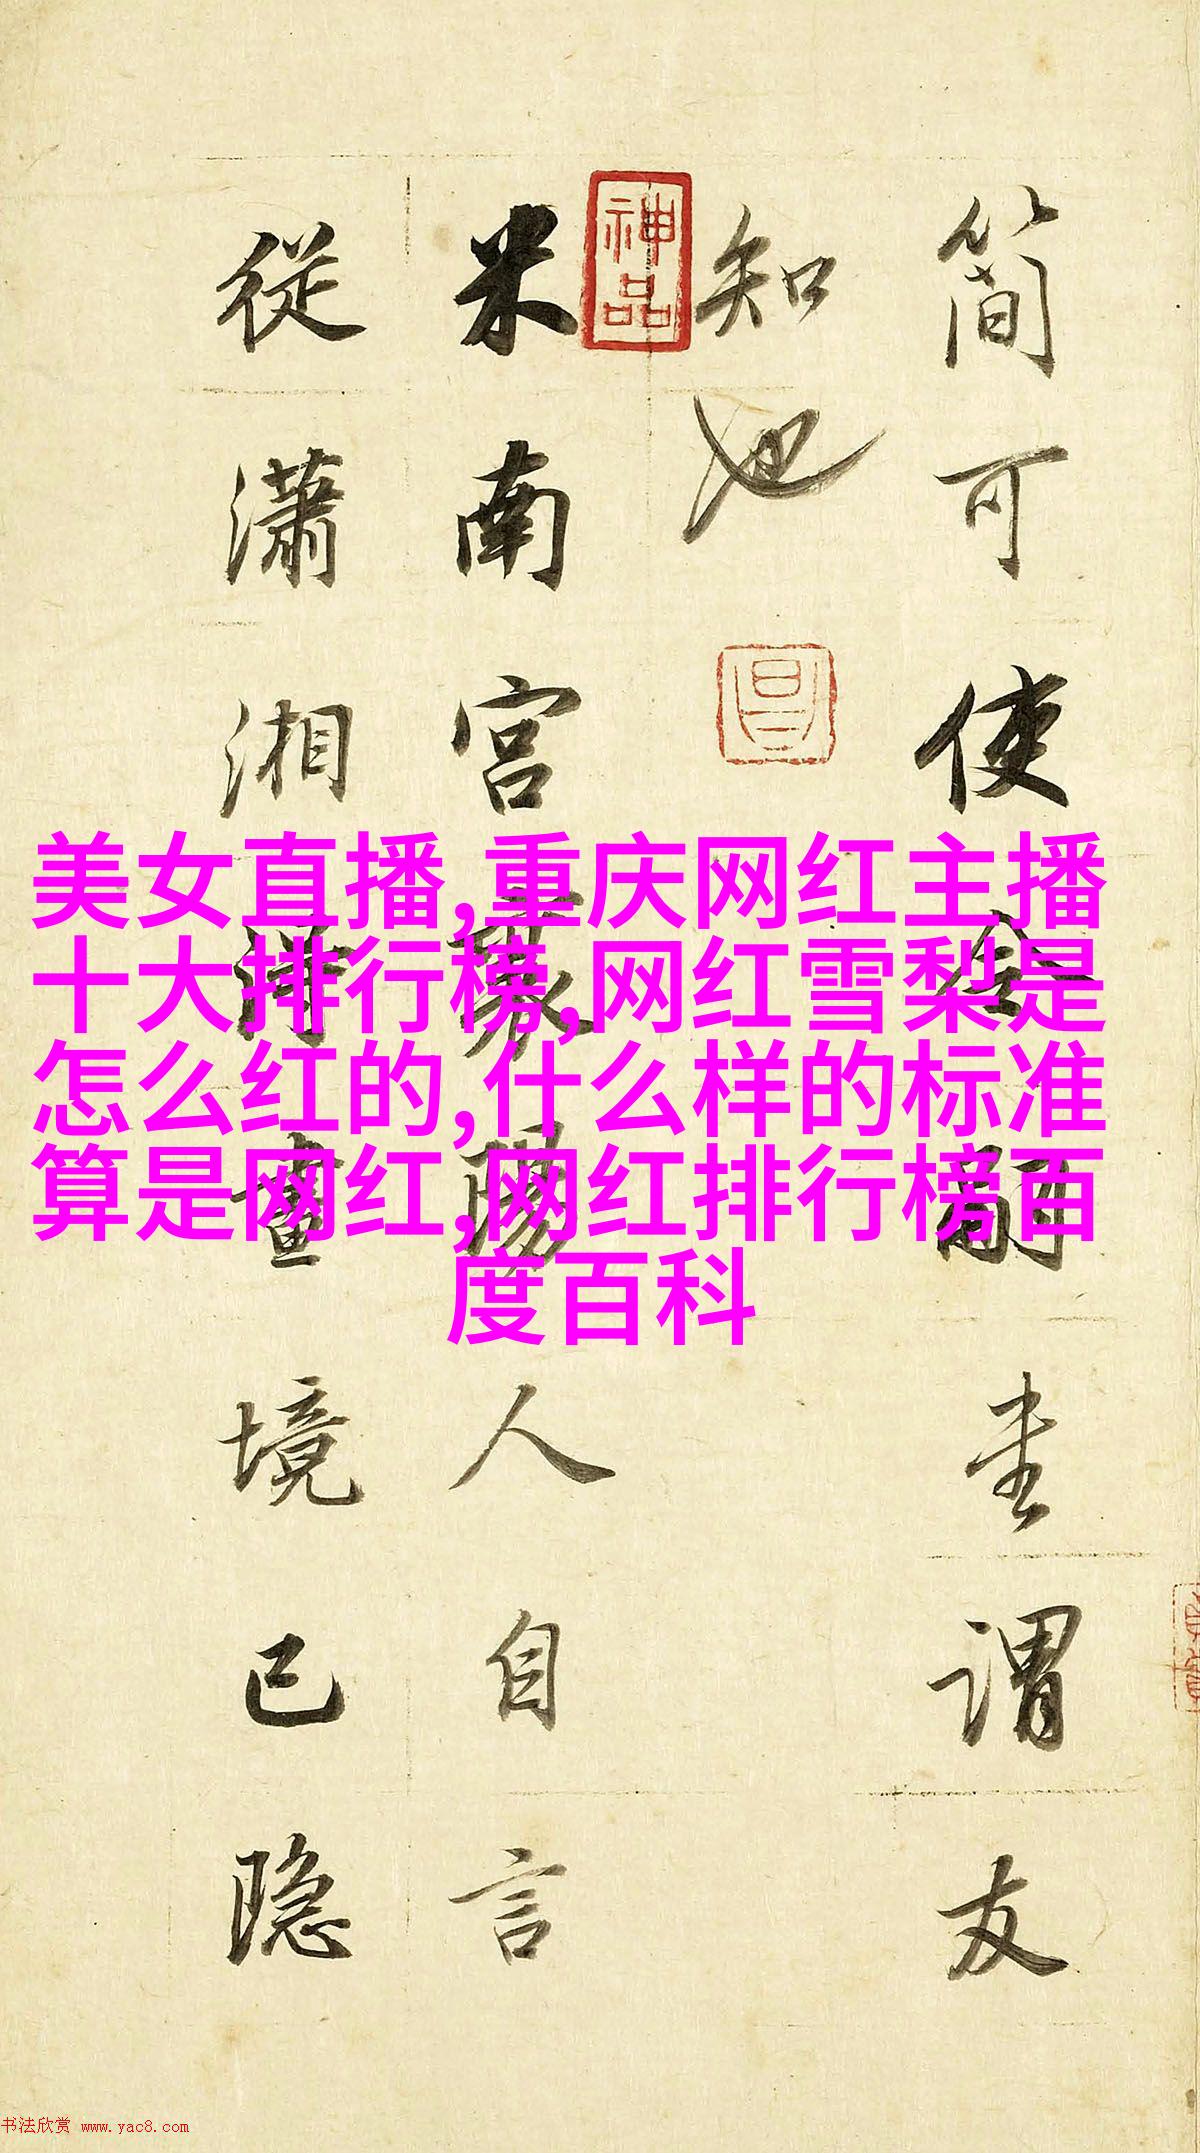 簡可使令嗣圭謂友
知也
米南宮襄陽人自言
從瀟湘得畫境已隱
神品
美女直播,重庆网红主播
十大排行榜,网红雪梨是
怎么红的,什么样的标准
算是网红,网红排行榜百
度百科
书法欣赏 www.yac8.com